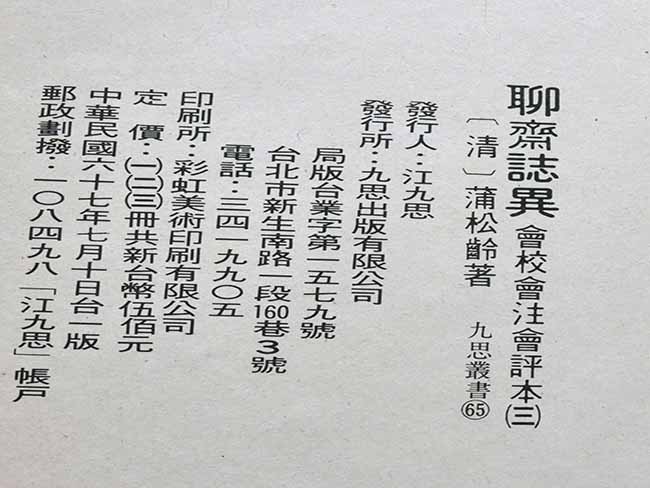 聊齋誌異會校會注會評本㈢
〔清〕蒲松齡著 九思叢書65
發行人：江九思
發行所：九思出版有限公司
局版台業字第一五七九號
台北市新生南路一段160巷3號
電話：三四一九九〇五
印刷所：彩虹美術印刷有限公司
定 價：㈠㈡㈢冊共新台幣伍佰元
中華民國六十七年七月十日台一版
郵政劃撥：一〇八四九八「江九思」帳戶